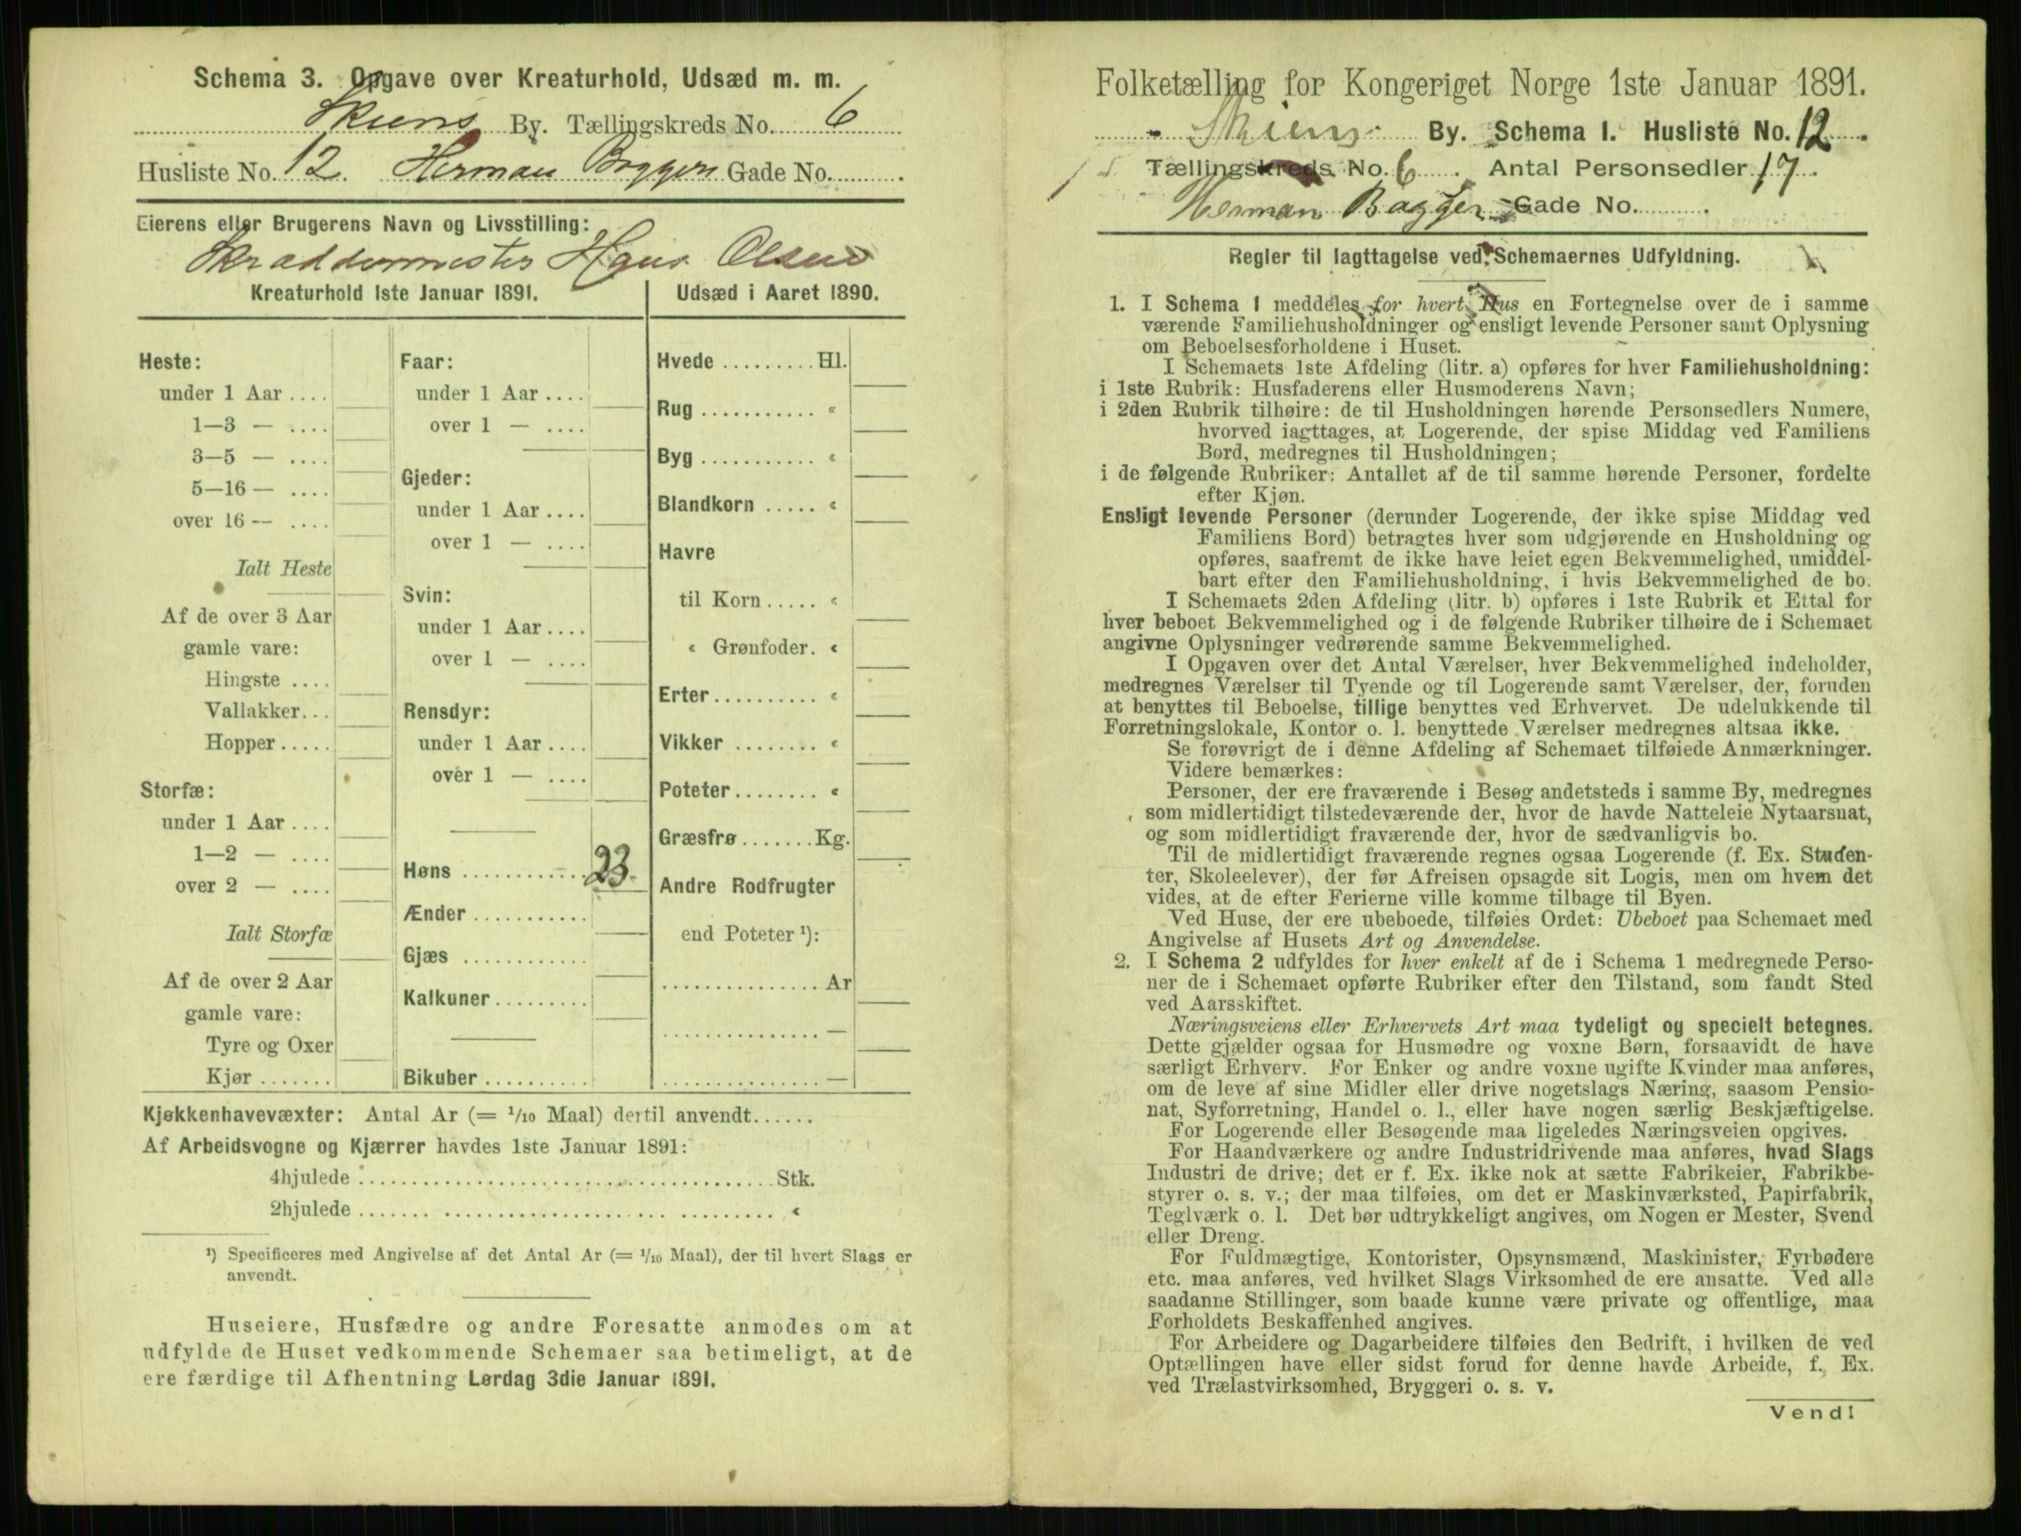 Schema 3. Opgave over Kreaturhold, Udsæd m. m.
Skiens By. Tællingskreds No. 6
Husliste No. 12. Herman Baggers Gade No. .
Eierens eller Brugerens Navn og Livsstilling:
Skræddermester Hans Olsen
Kreaturhold 1ste Januar 1891.
Heste:
under 1 Aar ....
1—3 — ....
3—5 — ....
5—16 — ....
over 16 — ....
Ialt Heste
Af de over 3 Aar
gamle vare:
Hingste ....
Vallakker...
Hopper .....
Storfæ:
under 1 Aar ....
1—2 — ....
over 2 — ....
Ialt Storfæ
Af de over 2 Aar
gamle vare:
Tyre og Oxer
Kjør .......
Faar:
under 1 Aar ....
over 1 — ....
Gjeder:
under 1 Aar ....
over 1 — ....
Svin:
under 1 Aar ....
over 1 — ....
Rensdyr:
under 1 Aar ....
over 1 — ....
Høns ............ 23.
Ænder ...........
Gjæs ............
Kalkuner.........
Bikuber ..........
Udsæd i Aaret 1890.
Hvede ......... Hl.
Rug ........... «
Byg ........... «
Blandkorn ..... «
Havre
til Korn ..... «
« Grønfoder. «
Erter.......... «
Vikker ........ «
Poteter........ «
Græsfrø ....... Kg.
Andre Rodfrugter
end Poteter ¹):
............... Ar
............... —
............... —
Kjøkkenhavevæxter: Antal Ar (= 1/10 Maal) dertil anvendt......
Af Arbeidsvogne og Kjærrer havdes 1ste Januar 1891:
4hjulede ........................................ Stk.
2hjulede ........................................ «
¹) Specificeres med Angivelse af det Antal Ar (= 1/10 Maal), der til hvert Slags er
anvendt.
Huseiere, Husfædre og andre Foresatte anmodes om at
udfylde de Huset vedkommende Schemaer saa betimeligt, at de
ere færdige til Afhentning Lørdag 3die Januar 1891.
Folketælling for Kongeriget Norge 1ste Januar 1891.
Skiens By. Schema 1. Husliste No. 12.
Tællingskreds No. 6. Antal Personsedler 17.
Herman Baggers Gade No. .
Regler til Iagttagelse ved Schemaernes Udfyldning.
1. I Schema 1 meddeles for hvert Hus en Fortegnelse over de i samme
værende Familiehusholdninger og ensligt levende Personer samt Oplysning
om Beboelsesforholdene i Huset.
I Schemaets 1ste Afdeling (litr. a) opføres for hver Familiehusholdning:
i 1ste Rubrik: Husfaderens eller Husmoderens Navn;
i 2den Rubrik tilhøire: de til Husholdningen hørende Personsedlers Numere,
hvorved iagttages, at Logerende, der spise Middag ved Familiens
Bord, medregnes til Husholdningen;
i de følgende Rubriker: Antallet af de til samme hørende Personer, fordelte
efter Kjøn.
Ensligt levende Personer (derunder Logerende, der ikke spise Middag ved
Familiens Bord) betragtes hver som udgjørende en Husholdning og
opføres, saafremt de ikke have leiet egen Bekvemmelighed, umiddel-
bart efter den Familiehusholdning, i hvis Bekvemmelighed de bo.
I Schemaets 2den Afdeling (litr. b) opføres i 1ste Rubrik et Ettal for
hver beboet Bekvemmelighed og i de følgende Rubriker tilhøire de i Schemaet
angivne Oplysninger vedrørende samme Bekvemmelighed.
I Opgaven over det Antal Værelser, hver Bekvemmelighed indeholder,
medregnes Værelser til Tyende og til Logerende samt Værelser, der, foruden
at benyttes til Beboelse, tillige benyttes ved Erhvervet. De udelukkende til
Forretningslokale, Kontor o. l. benyttede Værelser medregnes altsaa ikke.
Se forøvrigt de i denne Afdeling af Schemaet tilføiede Anmærkninger.
Videre bemærkes:
Personer, der ere fraværende i Besøg andetsteds i samme By, medregnes
som midlertidigt tilstedeværende der, hvor de havde Natteleie Nytaarsnat,
og som midlertidigt fraværende der, hvor de sædvanligvis bo.
Til de midlertidigt fraværende regnes ogsaa Logerende (f. Ex. Studen-
ter, Skoleelever), der før Afreisen opsagde sit Logis, men om hvem det
vides, at de efter Ferierne ville komme tilbage til Byen.
Ved Huse, der ere ubeboede, tilføies Ordet: Ubeboet paa Schemaet med
Angivelse af Husets Art og Anvendelse.
2. I Schema 2 udfyldes for hver enkelt af de i Schema 1 medregnede Perso-
ner de i Schemaet opførte Rubriker efter den Tilstand, som fandt Sted
ved Aarsskiftet.
Næringsveiens eller Erhvervets Art maa tydeligt og specielt betegnes.
Dette gjælder ogsaa for Husmødre og voxne Børn, forsaavidt de have
særligt Erhverv. For Enker og andre voxne ugifte Kvinder maa anføres,
om de leve af sine Midler eller drive nogetslags Næring, saasom Pensio-
nat, Syforretning, Handel o. l., eller have nogen særlig Beskjæftigelse.
For Logerende eller Besøgende maa ligeledes Næringsveien opgives.
For Haandværkere og andre Industridrivende maa anføres, hvad Slags
Industri de drive; det er f. Ex. ikke nok at sætte Fabrikeier, Fabrikbe-
styrer o. s. v.; der maa tilføies, om det er Maskinværksted, Papirfabrik,
Teglværk o. l. Det bør udtrykkeligt angives, om Nogen er Mester, Svend
eller Dreng.
For Fuldmægtige, Kontorister, Opsynsmænd, Maskinister, Fyrbødere
etc. maa anføres, ved hvilket Slags Virksomhed de ere ansatte. Ved alle
saadanne Stillinger, som baade kunne være private og offentlige, maa
Forholdets Beskaffenhed angives.
For Arbeidere og Dagarbeidere tilføies den Bedrift, i hvilken de ved
Optællingen have eller sidst forud for denne havde Arbeide, f. Ex.
ved Trælastvirksomhed, Bryggeri o. s. v.
Vend!